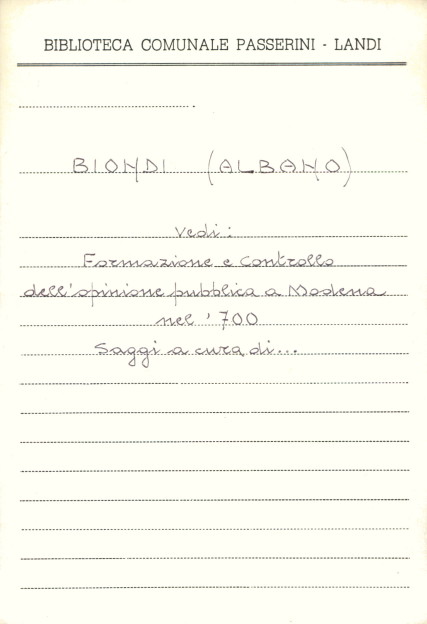 BIBLIOTECA COMUNALE PASSERINI - LANDI
BIONDI (ALBANO)
Vedi:
Formazione e controllo
dell'opinione pubblica a Modena
nel '700
Saggi a cura di...